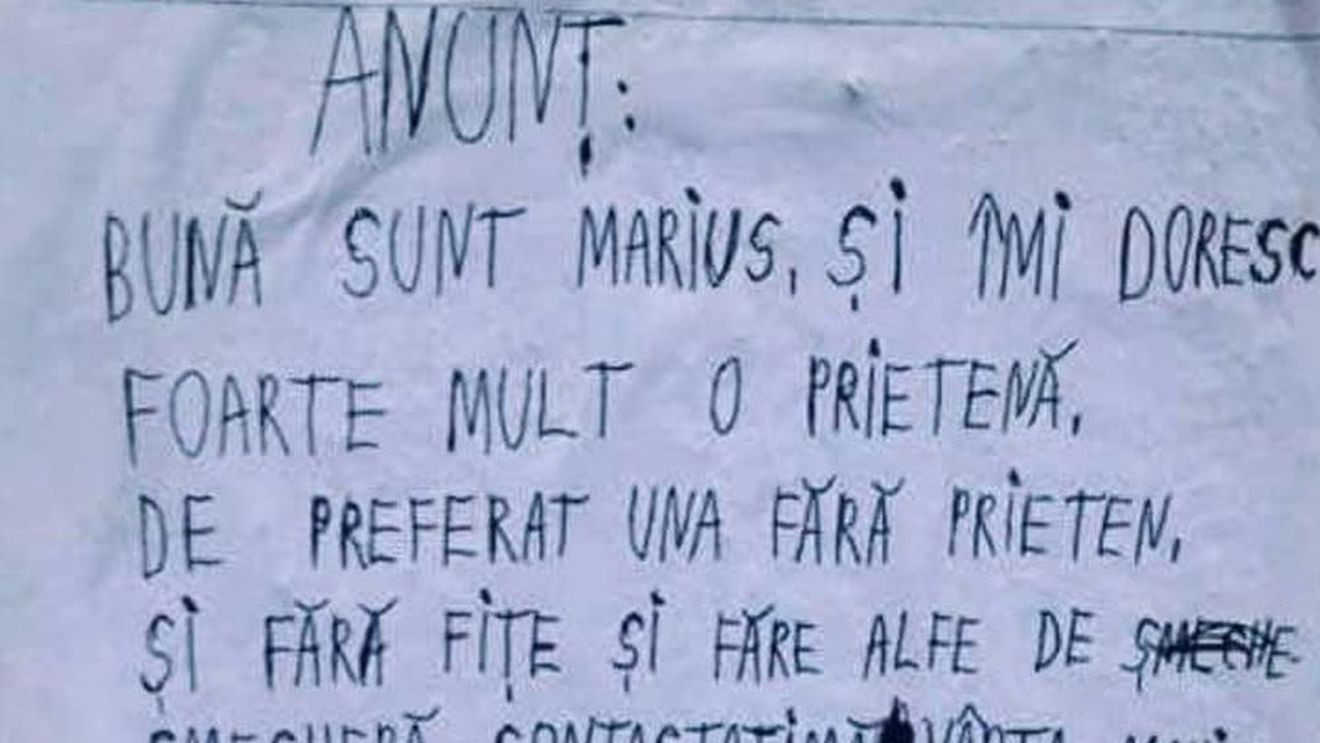 ANUNȚ:
BUNĂ SUNT MARIUS, ȘI ÎMI DORESC
FOARTE MULT O PRIETENĂ,
DE PREFERAT UNA FĂRĂ PRIETEN,
ȘI FĂRĂ FIȚE ȘI FĂRE ALFE DE ȘMECHE
ȘMECHERĂ CONTACTAȚIMĂ VÂRTA